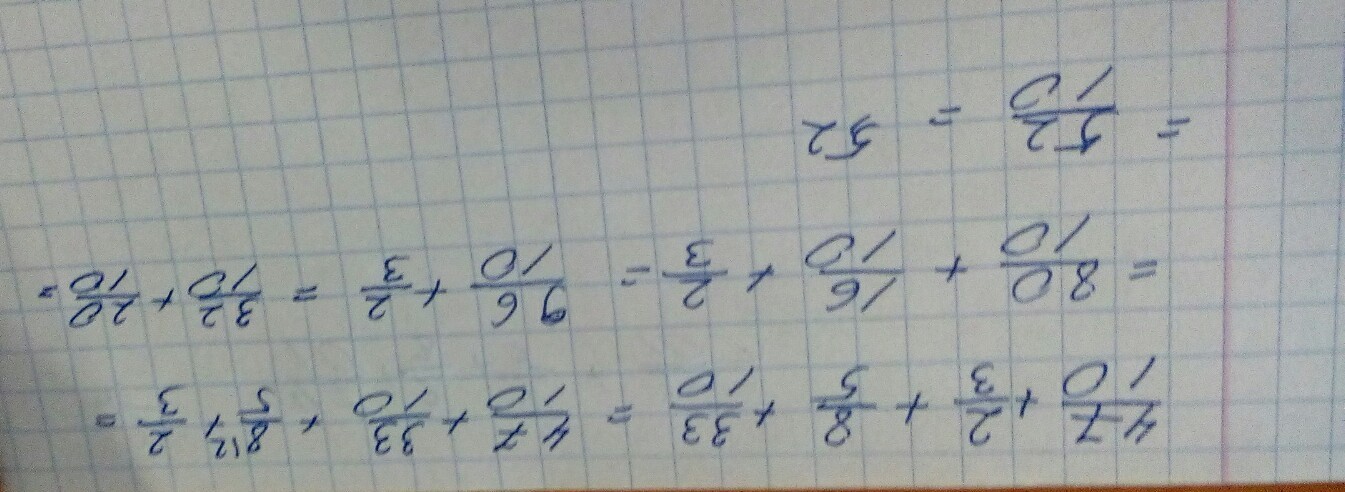 47/10 + 2/3 + 8/5 + 33/10 = 47/10 + 33/10 + 8\2/5 + 2/3 =
= 80/10 + 16/10 + 2/3 = 96/10 + 2/3 = 32/10 + 20/10 =
= 52/10 = 52